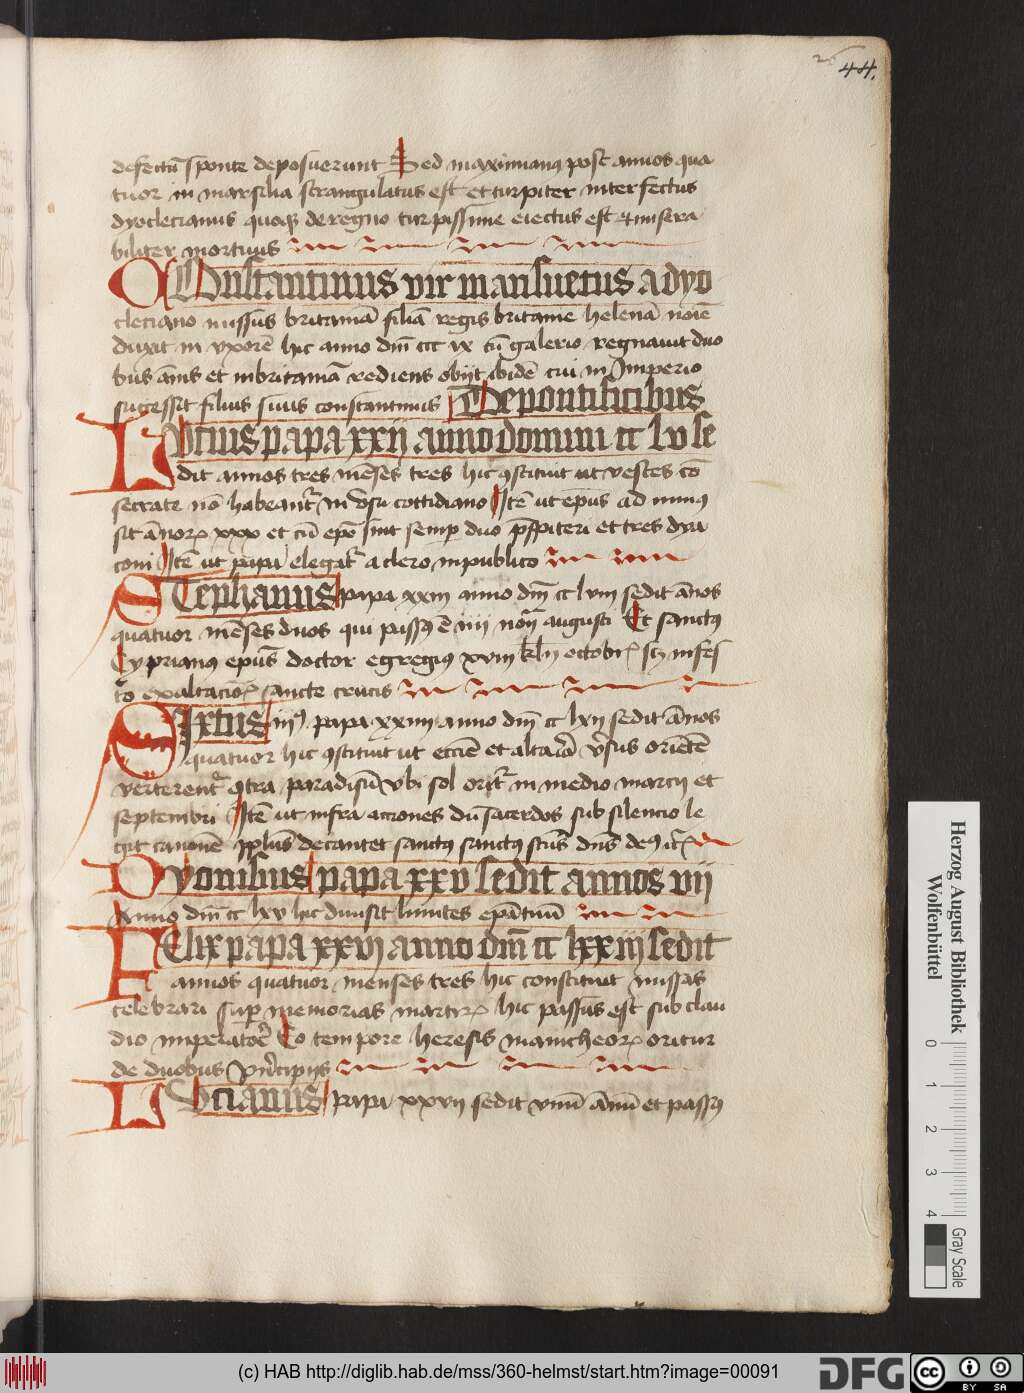 26 44.
defectū sponte deposuerunt Sed maximianꝰ post annos qua
tuor in marsilia strangulatus est et turpiter interfectus
dyoclecianus quoqꝫ de regno turpissime eiectus est et misera
biliter mortuus
COnstantinus vir mansuetus a dyo
cleciano missus britaniā filiā regis britanie helenā noīe
duxit in vxorē hic anno dnī ccc ix cū galerio regnauit duo
bus ānis et in britaniā rediens obijt ibidē cui in Imperio
sucessit filius suus constantinus De pontificibus
LVcius papa xxij anno domini cc lv se
dit annos tres mēses tres hic ꝯstituit ut vestes cō
secrate nō habeantr̄ in vsu cottidiano Itē ut epūs ad minꝰ
sit ānorꝝ xxx et cū epō sint semp duo prēsbiteri et tres dya
coni Itē ut papa elegatr̄ a clero in publico
STephanus papa xxiij anno dnī cc lviij sedit ānos
quatuor mēses duos qui passꝰ ē iiij noñ augusti Et sanctꝰ
Cyprianꝰ epūs doctor egregiꝰ xviij kl̄n octobrꝭ scꝫ in fes
to exaltacioꝭ sancte crucis
SIxtus iiꝰ papa xxiiij anno dnī cc lxij sedit ānos
quatuor hic ꝯstituit ut eccīe et altaria v̄sus oriētē
verterentr̄ ꝯtra paradisū vbi sol oritr̄ in medio marcij et
septembri Itē ut infra acciones dū sacerdos sub silencio le
git canonē ppłus decantet sanctꝰ sanctꝰ scūs dnūs deꝰ
DYonisius papa xxv sedit annos vij
Anno dnī cc lxv hic diuisit limites epātuū
FElix papa xxvj anno dnī cc lxxiij sedit
annos quatuor menses tres hic constituit missas
celebrari sup memorias martirꝝ hic passus est sub clau
dio imperatorē Eo tempore heresis manicheorꝝ oritur
de duobus principijs
LVcianus papa xxvij sedit vnū ānū et passꝰ
Herzog August Bibliothek
Wolfenbüttel
0 1 2 3 4
Gray Scale
(c) HAB http://diglib.hab.de/mss/360-helmst/start.htm?image=00091
DFG
cc BY SA